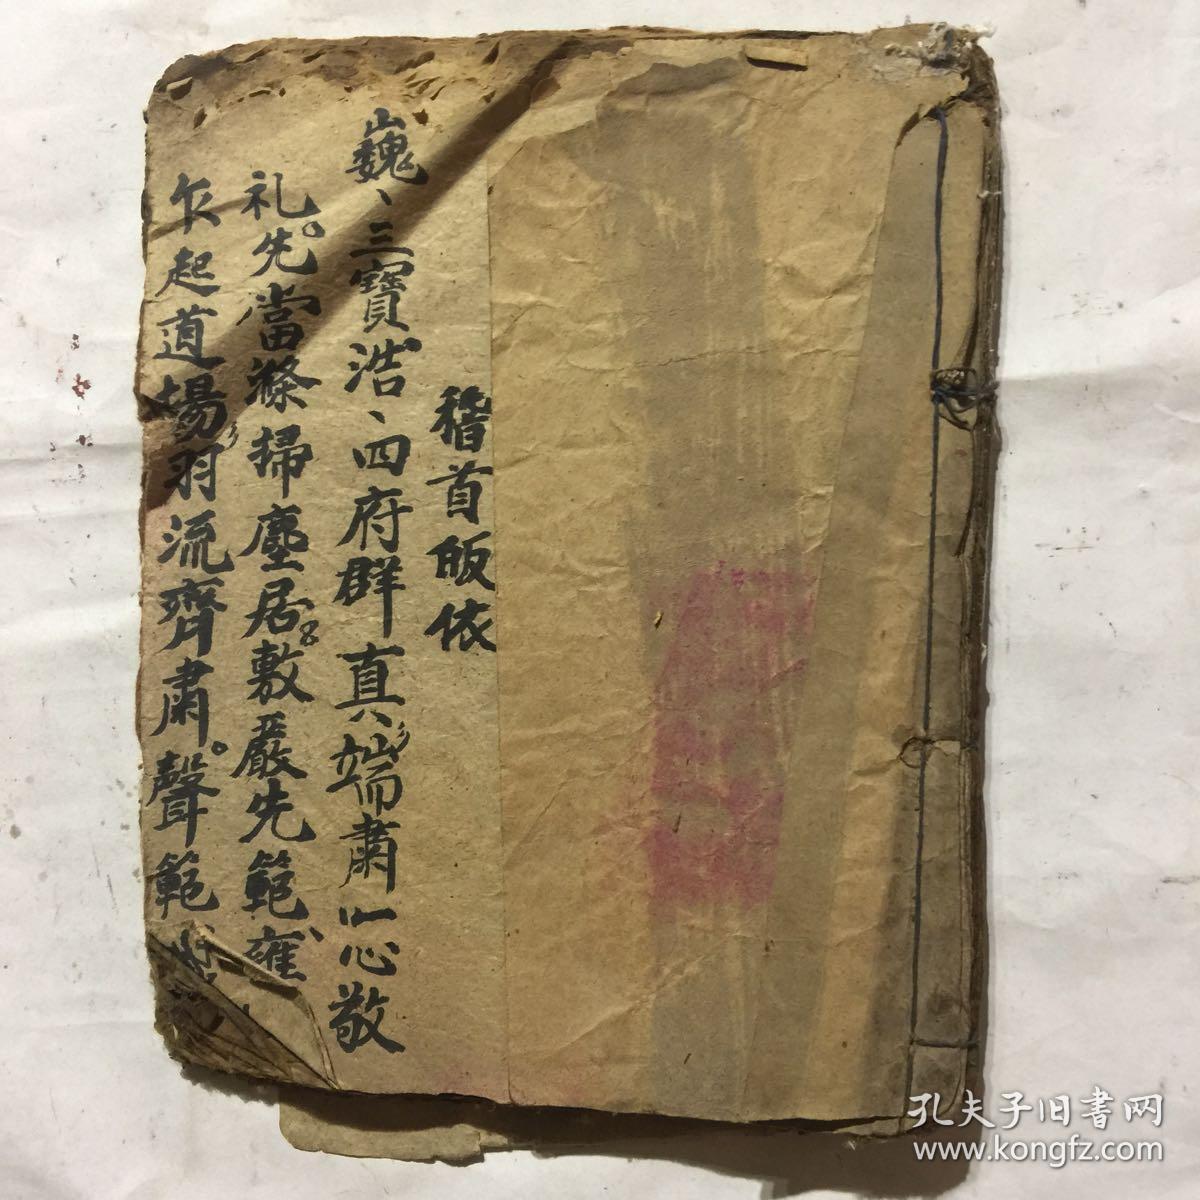 稽首皈依
巍、三寶浩、四府群真端肅一心敬
礼先當滌掃塵居敷嚴先範雍、
乍起道場羽流齊肅聲範
孔夫子旧書网
www.kongfz.com